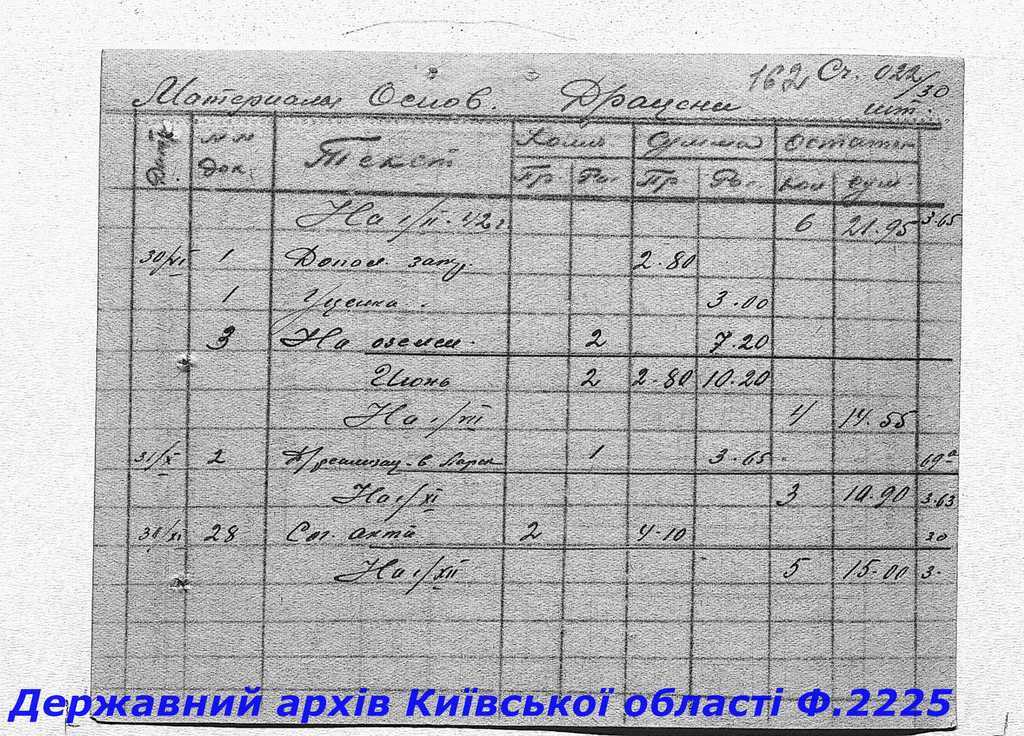 162 Сч. 022/30
Материалы Основ. Драцены шт.
№№ док. Текст Колич Сумма Остаток
Пр Рас. Пр Рас. кол сум.
На 1/II-42 г. 6 21.95 3.65
30/VI 1 Допол. запу. 2.80
1 Уценка 3.00
3 На озелен. 2 7.20
Июнь 2 2.80 10.20
На 1/VII 4 14.55
31/X 2 в Парк 1 3.65
На 1/XI 3 10.90 3.63
30/XI 28 Сог. акта 2 4.10 30
На 1/XII 5 15.00 3.
Державний архів Київської області Ф.2225